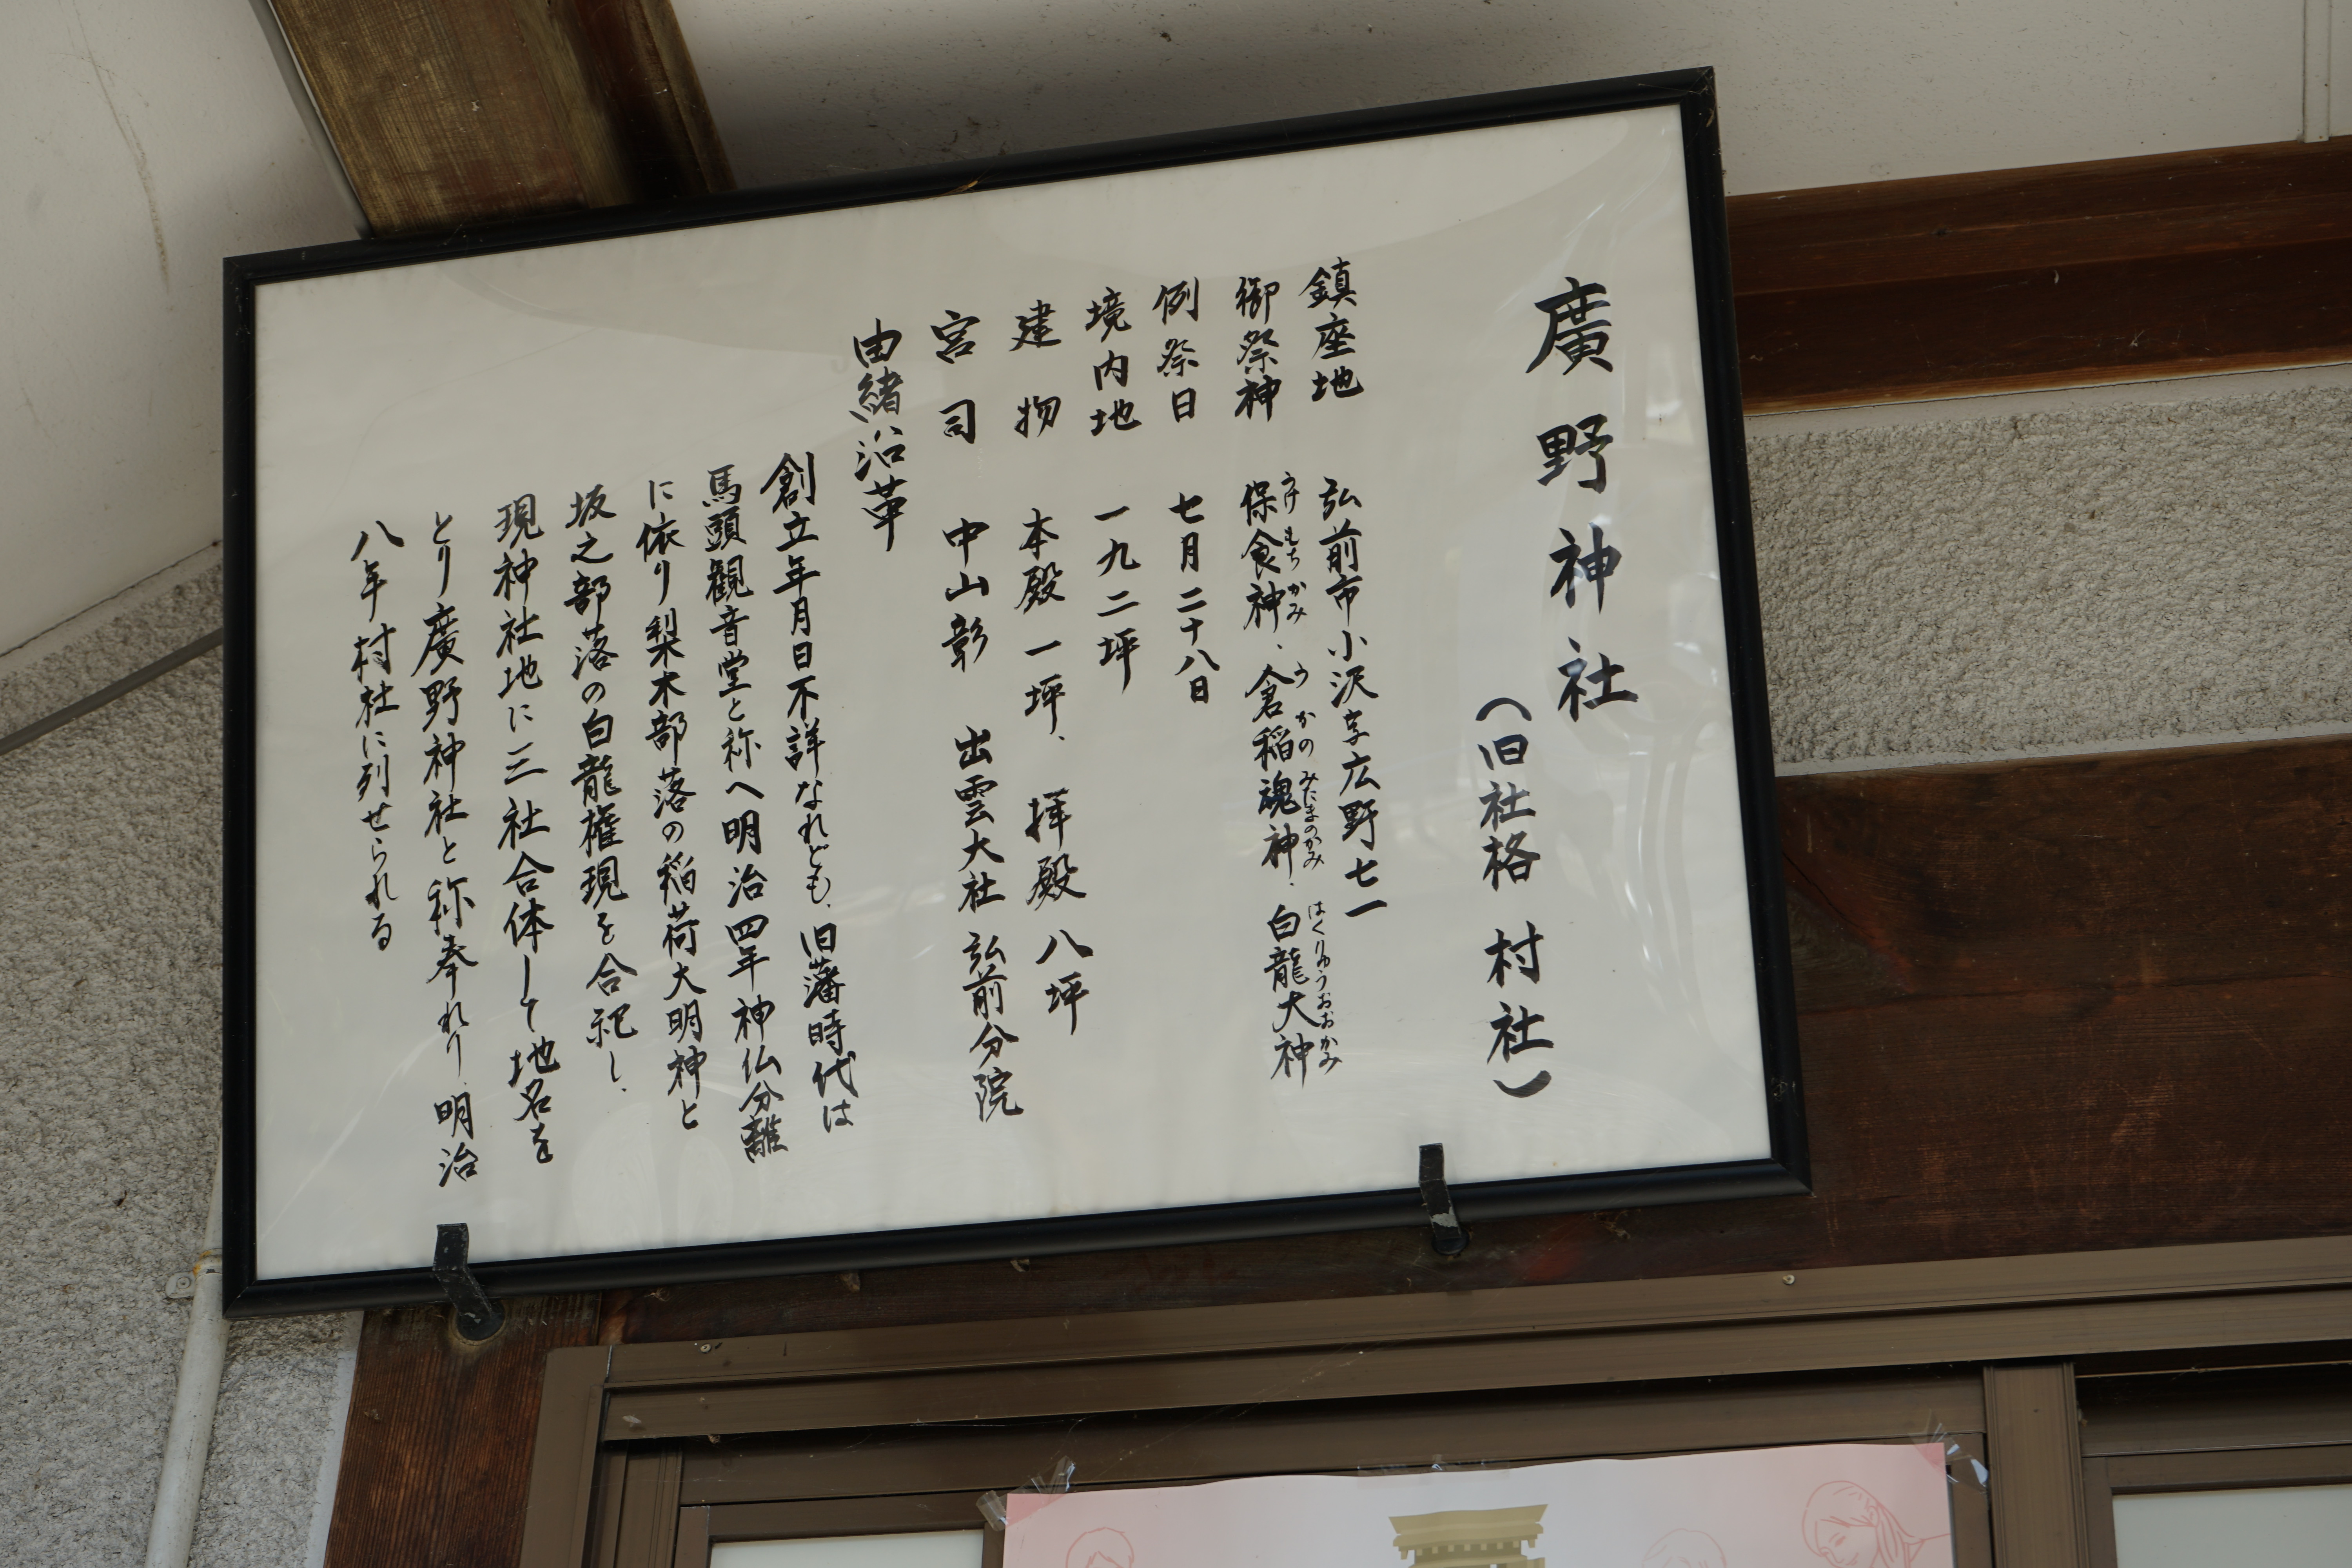 廣野神社
(旧社格 村社)
鎮座地 弘前市小沢字広野七一
御祭神 保食神、倉稲魂神、白龍大神
うけもちかみ うかのみたまのかみ はくりゅうおおかみ
例祭日 七月二十八日
境内地 一九二坪
建物 本殿 一坪、 拝殿 八坪
宮司 中山彰 出雲大社 弘前分院
由緒沿革
創立年月日不詳なれども、旧藩時代は
馬頭観音堂と称へ明治四年神仏分離
に依り梨木部落の稲荷大明神と
坂之部落の白龍権現を合祀し、
現神社地に三社合体して地名を
とり廣野神社と称奉れり 明治
八年村社に列せられる